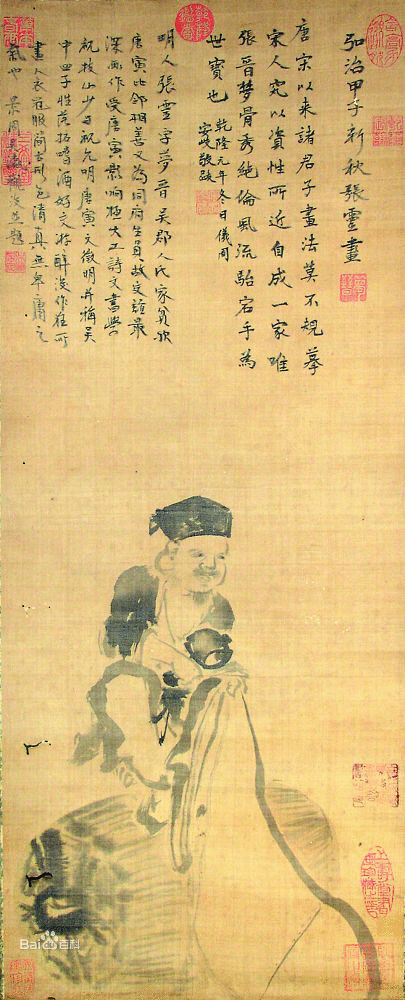 弘治甲子新秋張靈畫
唐宋以來諸君子畫法莫不規摹
宋人究以資性所近自成一家唯
張晉夢骨秀絶倫風流駘宕手為
世寶也 乾隆元年冬日儀周
安岐敬跋
明人張靈字夢晉吳郡人氏家貧
唐寅比鄰相善又為同府生員故交誼最
深而作受唐寅影响極大工詩文書
祝枝山少与祝允明唐寅文徵明并稱吳
中四子性落拓嗜酒好文将醉作狂所
畫人衣冠服简古形色清真無卑庸之
氣也 景周 題
Bai百科